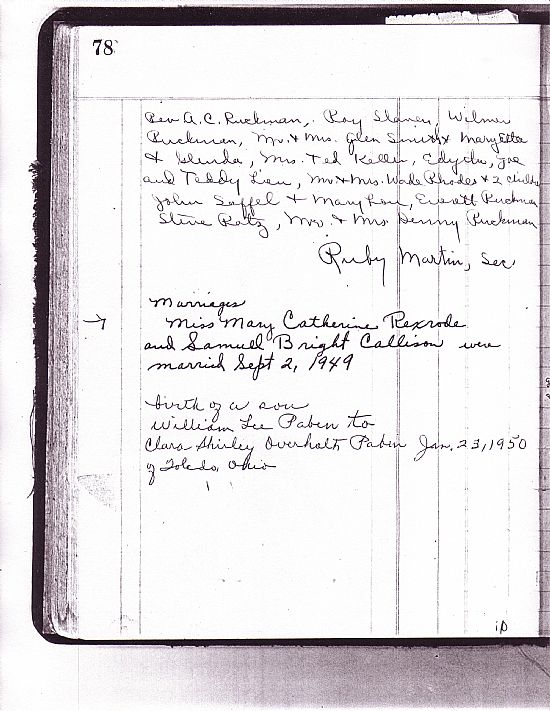 78
Rev A.C. Ruckman, Roy Slaven, Wilmer
Ruckman, Mr. & Mrs. Glen Smith & Mary Etta
& Glenda, Mrs. Ted Keller, Edythe, Joe
and Teddy Lien, Mr & Mrs. Wade Rhodes & 2 children
John Saffel & Mary Lou, Everett Ruckman
Steve Ratz, Mr. & Mrs Denny Ruckman
Ruby Martin, Sec
Marriages
→ Miss Mary Catherine Rexrode
and Samuel Bright Callison were
married Sept 2, 1949
birth of a son
William Lee Paben to
Clara Shirley Overholt Paben Jan. 23, 1950
of Toledo, Ohio